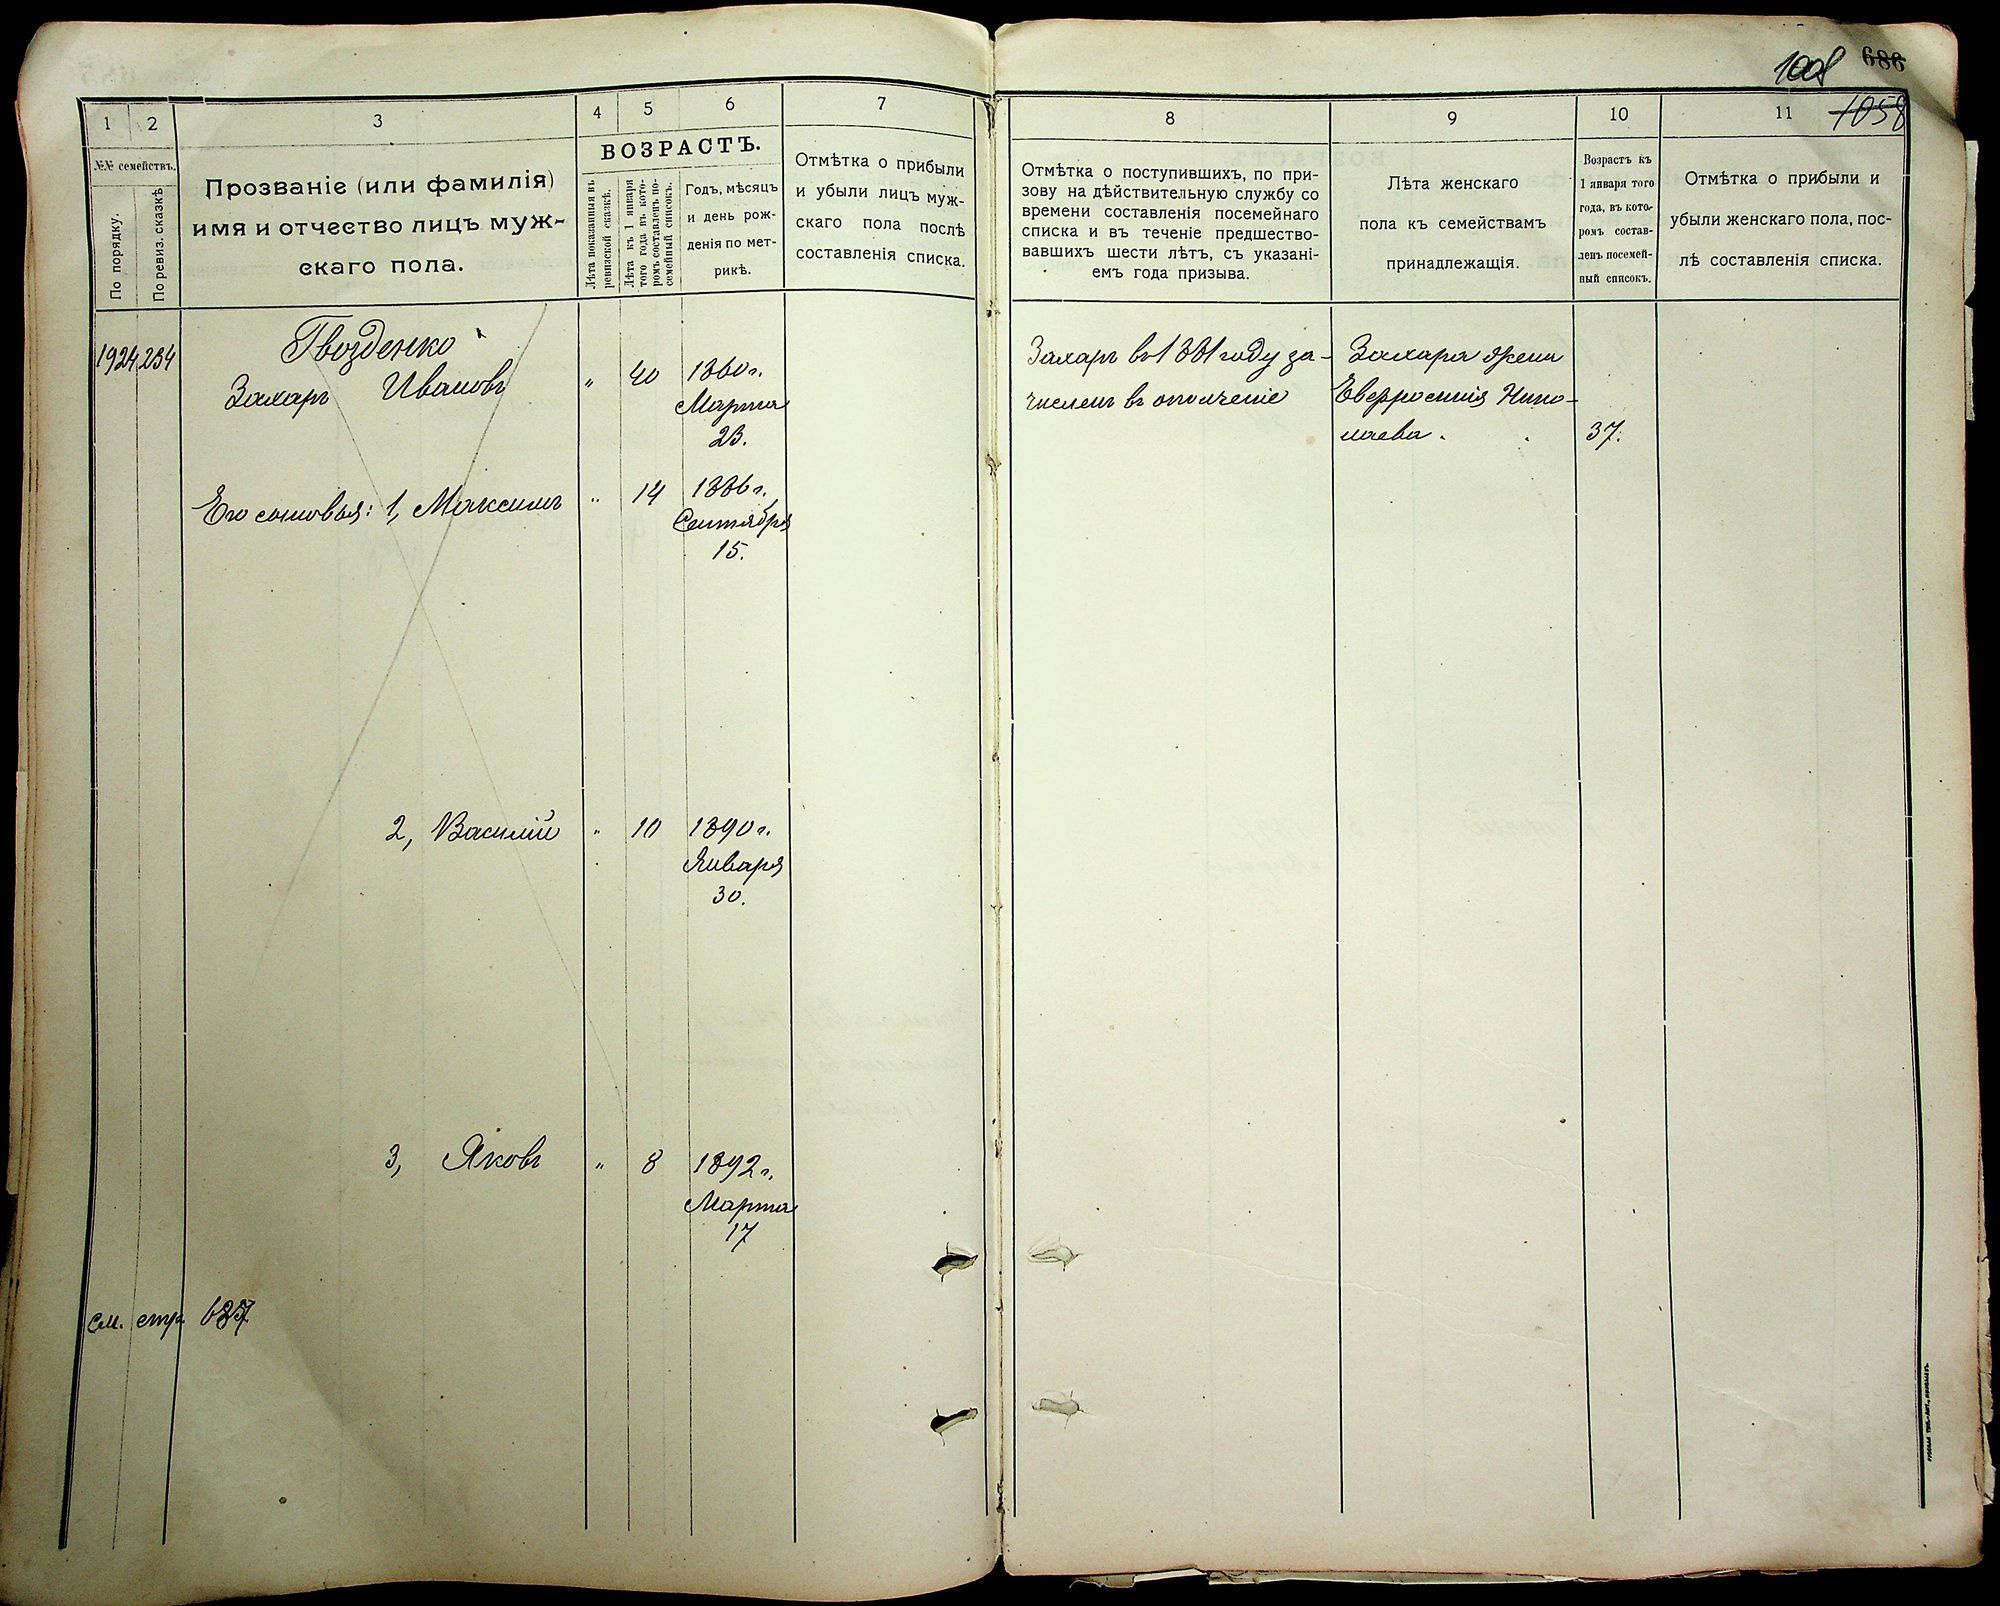 1008 686
1058
1
2
3
4
5
6
7
8
9
10
11
№№ семействъ.
По порядку.
По ревиз. сказкѣ
Прозваніе (или фамилія)
имя и отчество лицъ муж-
скаго пола.
ВОЗРАСТЪ.
Лѣта показанныя въ
ревизской сказкѣ.
Лѣта къ 1 января
того года въ кото-
ромъ составленъ по-
семейный списокъ.
Годъ, мѣсяцъ
и день рож-
денія по мет-
рикѣ.
Отмѣтка о прибыли
и убыли лицъ муж-
скаго пола послѣ
составленія списка.
Отмѣтка о поступившихъ, по при-
зову на дѣйствительную службу со
времени составленія посемейнаго
списка и въ теченіе предшество-
вавшихъ шести лѣтъ, съ указані-
емъ года призыва.
Лѣта женскаго
пола къ семействамъ
принадлежащія.
Возрастъ къ
1 января того
года, въ кото-
ромъ состав-
ленъ посемей-
ный списокъ.
Отмѣтка о прибыли и
убыли женскаго пола, пос-
лѣ составленія списка.
1924 234
Гвозденко
Захаръ Ивановъ
" 40 1860 г.
Марта
23.
Захаръ въ 1881 году за-
численъ въ ополченіе
Захара жена
Евфросинія Нико-
лаева. 37.
Его сыновья: 1, Максимъ " 14 1886 г.
Сентября
15.
2, Василій " 10 1890 г.
Января
30.
3, Яковъ " 8 1892 г.
Марта
17
см. стр